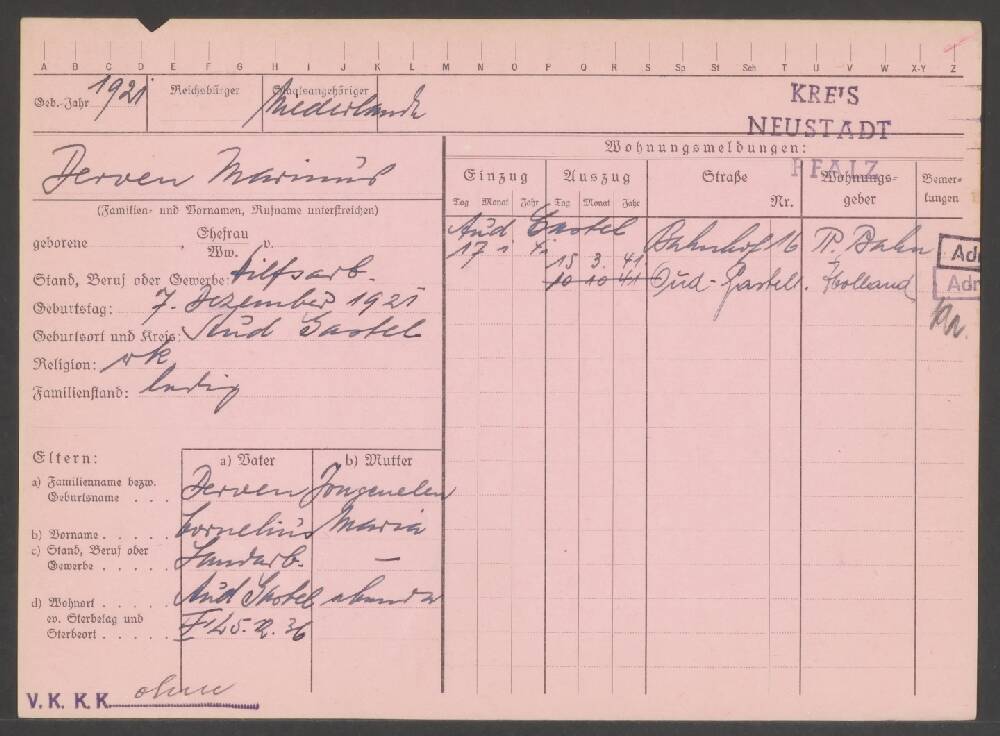 A B C D E F G H I J K L M N O P Q R S Sp St Sch T U V W X-Y Z
Geb.-Jahr 1921 Reichsbürger Staatsangehöriger Niederlande
KREIS
NEUSTADT
PFALZ
Derven Marinus
(Familien- und Vornamen, Rufname unterstreichen)
geborene Ehefrau v.
Ww.
Stand, Beruf oder Gewerbe: Hilfsarb.
Geburtstag: 7. Dezember 1921
Geburtsort und Kreis: Aud Gastel
Religion: rk
Familienstand: ledig
Wohnungsmeldungen:
Einzug Auszug Straße Nr. Wohnungsgeber Bemerkungen
Tag Monat Jahr Tag Monat Jahr
Aud Gastel
17 Bahnhof 16 P. Bahn
15 3. 41
10 10 41 Oud-Gastel. Holland
Adr
Adr
Eltern:
a) Vater b) Mutter
a) Familienname bezw. Geburtsname . . . Derven Jongenelen
b) Vorname . . . . . Cornelius Maria
c) Stand, Beruf oder Gewerbe . . . . . Landarb. —
d) Wohnort . . . . . Aud Gastel ebenda
ev. Sterbetag und Sterbeort . . . . .
V. K. K. K. ohne